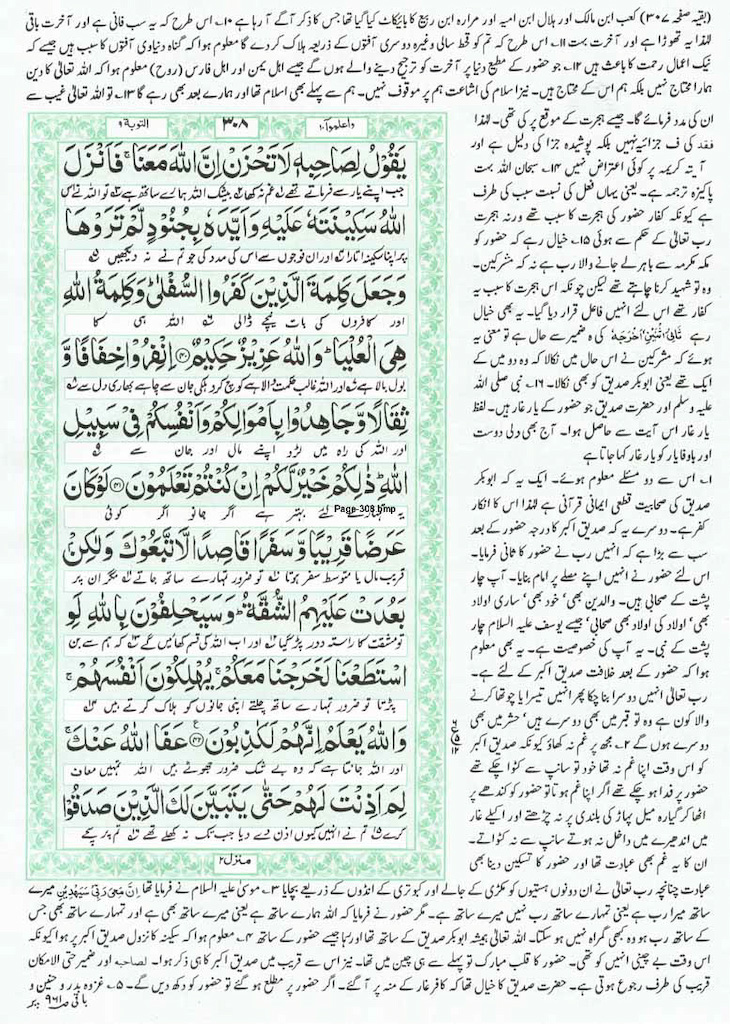 (بقیہ صفحہ ۳۰۷) کعب ابن مالک اور ہلال ابن امیہ اور مرارہ ابن ربیع کا بائیکاٹ کیا گیا تھا جس کا ذکر آگے آ رہا ہے ۱۰۔ اس طرح کہ یہ سب فانی ہے اور آخرت باقی
لہٰذا یہ تھوڑا ہے اور آخرت بہت ۱۱۔ اس طرح کہ تم کو قحط سالی وغیرہ دوسری آفتوں کے ذریعہ ہلاک کر دے گا معلوم ہوا کہ گناہ دنیاوی آفتوں کا سبب ہیں جیسے کہ
نیک اعمال رحمت کا باعث ہیں ۱۲۔ جو حضور کے مطیع دنیا پر آخرت کو ترجیح دینے والے ہوں گے جیسے اہل یمن اور اہل فارس (روح) معلوم ہوا کہ اللہ تعالیٰ کا دین
ہمارا محتاج نہیں بلکہ ہم اس کے محتاج ہیں۔ نیز اسلام کی اشاعت ہم پر موقوف نہیں۔ ہم سے پہلے بھی اسلام تھا اور ہمارے بعد بھی رہے گا ۱۳۔ تو اللہ تعالیٰ غیب سے
ان کی مدد فرمائے گا۔ جیسے ہجرت کے موقع پر کی تھی۔ لہٰذا
فقد کی ف جزائیہ نہیں بلکہ پوشیدہ جزا کی دلیل ہے اور
آیتہ کریمہ پر کوئی اعتراض نہیں ۱۴۔ سبحان اللہ بہت
پاکیزہ ترجمہ ہے۔ یعنی یہاں فعل کی نسبت سبب کی طرف
ہے کیونکہ کفار حضور کی ہجرت کا سبب تھے ورنہ ہجرت
رب تعالیٰ کے حکم سے ہوئی ۱۵۔ خیال رہے کہ حضور کو
مکہ مکرمہ سے باہر لے جانے والا رب ہے نہ کہ مشرکین۔
وہ تو شہید کرنا چاہتے تھے لیکن چونکہ اس ہجرت کا سبب یہ
کفار تھے اس لئے انہیں فاعل قرار دیا گیا۔ یہ بھی خیال
رہے ثانی اثنین اخرجہ کی ہ ضمیر سے حال ہے تو معنی یہ
ہوئے کہ مشرکین نے اس حال میں نکالا کہ وہ دو میں کے
ایک تھے یعنی ابوبکر صدیق کو بھی نکالا۔ ۱۶۔ نبی صلی اللہ
علیہ وسلم اور حضرت صدیق جو حضور کے یار غار ہیں۔ لفظ
یار غار اس آیت سے حاصل ہوا۔ آج بھی دلی دوست
اور باوفا یار کو یار غار کہا جاتا ہے
۱۔ اس سے دو مسئلے معلوم ہوئے۔ ایک یہ کہ ابوبکر
صدیق کی صحابیت قطعی ایمانی قرآنی ہے لہٰذا اس کا انکار
کفر ہے۔ دوسرے یہ کہ صدیق اکبر کا درجہ حضور کے بعد
سب سے بڑا ہے کہ انہیں رب نے حضور کا ثانی فرمایا۔
اس لئے حضور نے انہیں اپنے مصلے پر امام بنایا۔ آپ چار
پشت کے صحابی ہیں۔ والدین بھی' خود بھی' ساری اولاد
بھی' اولاد کی اولاد بھی صحابی' جیسے یوسف علیہ السلام چار
پشت کے نبی۔ یہ آپ کی خصوصیت ہے۔ یہ بھی معلوم
ہوا کہ حضور کے بعد خلافت صدیق اکبر کے لئے ہے۔
رب تعالیٰ انہیں دوسرا بنا چکا پھر انہیں تیسرا یا چوتھا کرنے
والا کون ہے وہ تو قبر میں بھی دوسرے ہیں' حشر میں بھی
دوسرے ہوں گے ۲۔ مجھ پر غم نہ کھاؤ کیونکہ صدیق اکبر
کو اس وقت اپنا غم نہ تھا خود تو سانپ سے کٹوا چکے تھے
حضور پر فدا ہو چکے تھے اگر اپنا غم ہوتا تو حضور کو کندھے پر
اٹھا کر گیارہ میل پہاڑ کی بلندی پر نہ چڑھتے اور اکیلے غار
میں اندھیرے میں داخل نہ ہوتے سانپ سے نہ کٹواتے۔
ان کا یہ غم بھی عبادت تھا اور حضور کا تسکین دینا بھی
واعلموا۱۰
۳۰۸
التوبة۹
يَقُوْلُ لِصَاحِبِهٖ لَا تَحْزَنْ اِنَّ اللّٰهَ مَعَنَا ۚ فَاَنْزَلَ
جب اپنے یار سے فرماتے تھے غم نہ کھا بیشک اللہ ہمارے ساتھ ہے تو اللہ نے اس
اللّٰهُ سَكِيْنَتَهٗ عَلَيْهِ وَاَيَّدَهٗ بِجُنُوْدٍ لَّمْ تَرَوْهَا
پر اپنا سکینہ اتارا اور ان فوجوں سے اس کی مدد کی جو تم نے نہ دیکھیں
وَجَعَلَ كَلِمَةَ الَّذِيْنَ كَفَرُوا السُّفْلٰى ؕ وَكَلِمَةُ اللّٰهِ
اور کافروں کی بات نیچے ڈالی اللہ ہی کا
هِيَ الْعُلْيَا ؕ وَاللّٰهُ عَزِيْزٌ حَكِيْمٌ ﴿۴۰﴾ اِنْفِرُوْا خِفَافًا وَّ
بول بالا ہے اور اللہ غالب حکمت والا ہے کوچ کرو ہلکی جان سے چاہے بھاری دل سے
ثِقَالًا وَّجَاهِدُوْا بِاَمْوَالِكُمْ وَاَنْفُسِكُمْ فِيْ سَبِيْلِ
اور اللہ کی راہ میں لڑو اپنے مال اور جان سے
اللّٰهِ ؕ ذٰلِكُمْ خَيْرٌ لَّكُمْ اِنْ كُنْتُمْ تَعْلَمُوْنَ ﴿۴۱﴾ لَوْ كَانَ
یہ تمہارے لئے بہتر ہے اگر جانو اگر کوئی
Page-308.bmp
عَرَضًا قَرِيْبًا وَّسَفَرًا قَاصِدًا لَّاتَّبَعُوْكَ وَلٰكِنْۢ
قریب مال یا متوسط سفر ہوتا تو ضرور تمہارے ساتھ جاتے مگر ان پر
بَعُدَتْ عَلَيْهِمُ الشُّقَّةُ ؕ وَسَيَحْلِفُوْنَ بِاللّٰهِ لَوِ
تو مشقت کا راستہ دور پڑ گیا اور اب اللہ کی قسم کھائیں گے کہ ہم سے بن
اسْتَطَعْنَا لَخَرَجْنَا مَعَكُمْ ۚ يُهْلِكُوْنَ اَنْفُسَهُمْ ۚ
پڑتا تو ضرور تمہارے ساتھ چلتے اپنی جانوں کو ہلاک کرتے ہیں
وَاللّٰهُ يَعْلَمُ اِنَّهُمْ لَكٰذِبُوْنَ ﴿۴۲﴾ عَفَا اللّٰهُ عَنْكَ ۚ
اور اللہ جانتا ہے کہ وہ بے شک ضرور جھوٹے ہیں اللہ تمہیں معاف
لِمَ اَذِنْتَ لَهُمْ حَتّٰى يَتَبَيَّنَ لَكَ الَّذِيْنَ صَدَقُوْا
کرے تم نے انہیں کیوں اذن دے دیا جب تک نہ کھلے تھے تم پر سچے
منزل۲
عبادت چنانچہ رب تعالیٰ نے ان دونوں ہستیوں کو مکڑی کے جالے اور کبوتری کے انڈوں کے ذریعے بچایا ۳۔ موسیٰ علیہ السلام نے فرمایا تھا اِنَّ مَعِیَ رَبِّیْ سَیَهْدِیْنِ میرے
ساتھ میرا رب ہے یعنی تمہارے ساتھ رب نہیں میرے ساتھ ہے۔ مگر حضور نے فرمایا کہ اللہ ہمارے ساتھ ہے یعنی میرے ساتھ بھی ہے اور تمہارے ساتھ بھی جس
کے ساتھ رب ہو وہ کبھی گمراہ نہیں ہو سکتا۔ اللہ تعالیٰ ہمیشہ ابوبکر صدیق کے ساتھ تھا اور رہا جیسے حضور کے ساتھ ۴۔ معلوم ہوا کہ سکینہ کا نزول صدیق اکبر پر ہوا کیونکہ
اس وقت بے چینی انہیں کو تھی۔ حضور کا قلب مبارک تو پہلے سے ہی چین میں تھا۔ نیز اس سے قریب میں صدیق اکبر کا ہی ذکر ہوا۔ لصاحبہ اور ضمیر حتی الامکان
قریب کی طرف رجوع ہوتی ہے۔ حضرت صدیق کا خیال تھا کہ کافر غار کے منہ پر آ گئے۔ اگر حضور پر مطلع ہو گئے تو حضور کو دکھ دیں گے۔ ۵۔ غزوہ بدر و حنین و
باقی ص۹۶۱ پر